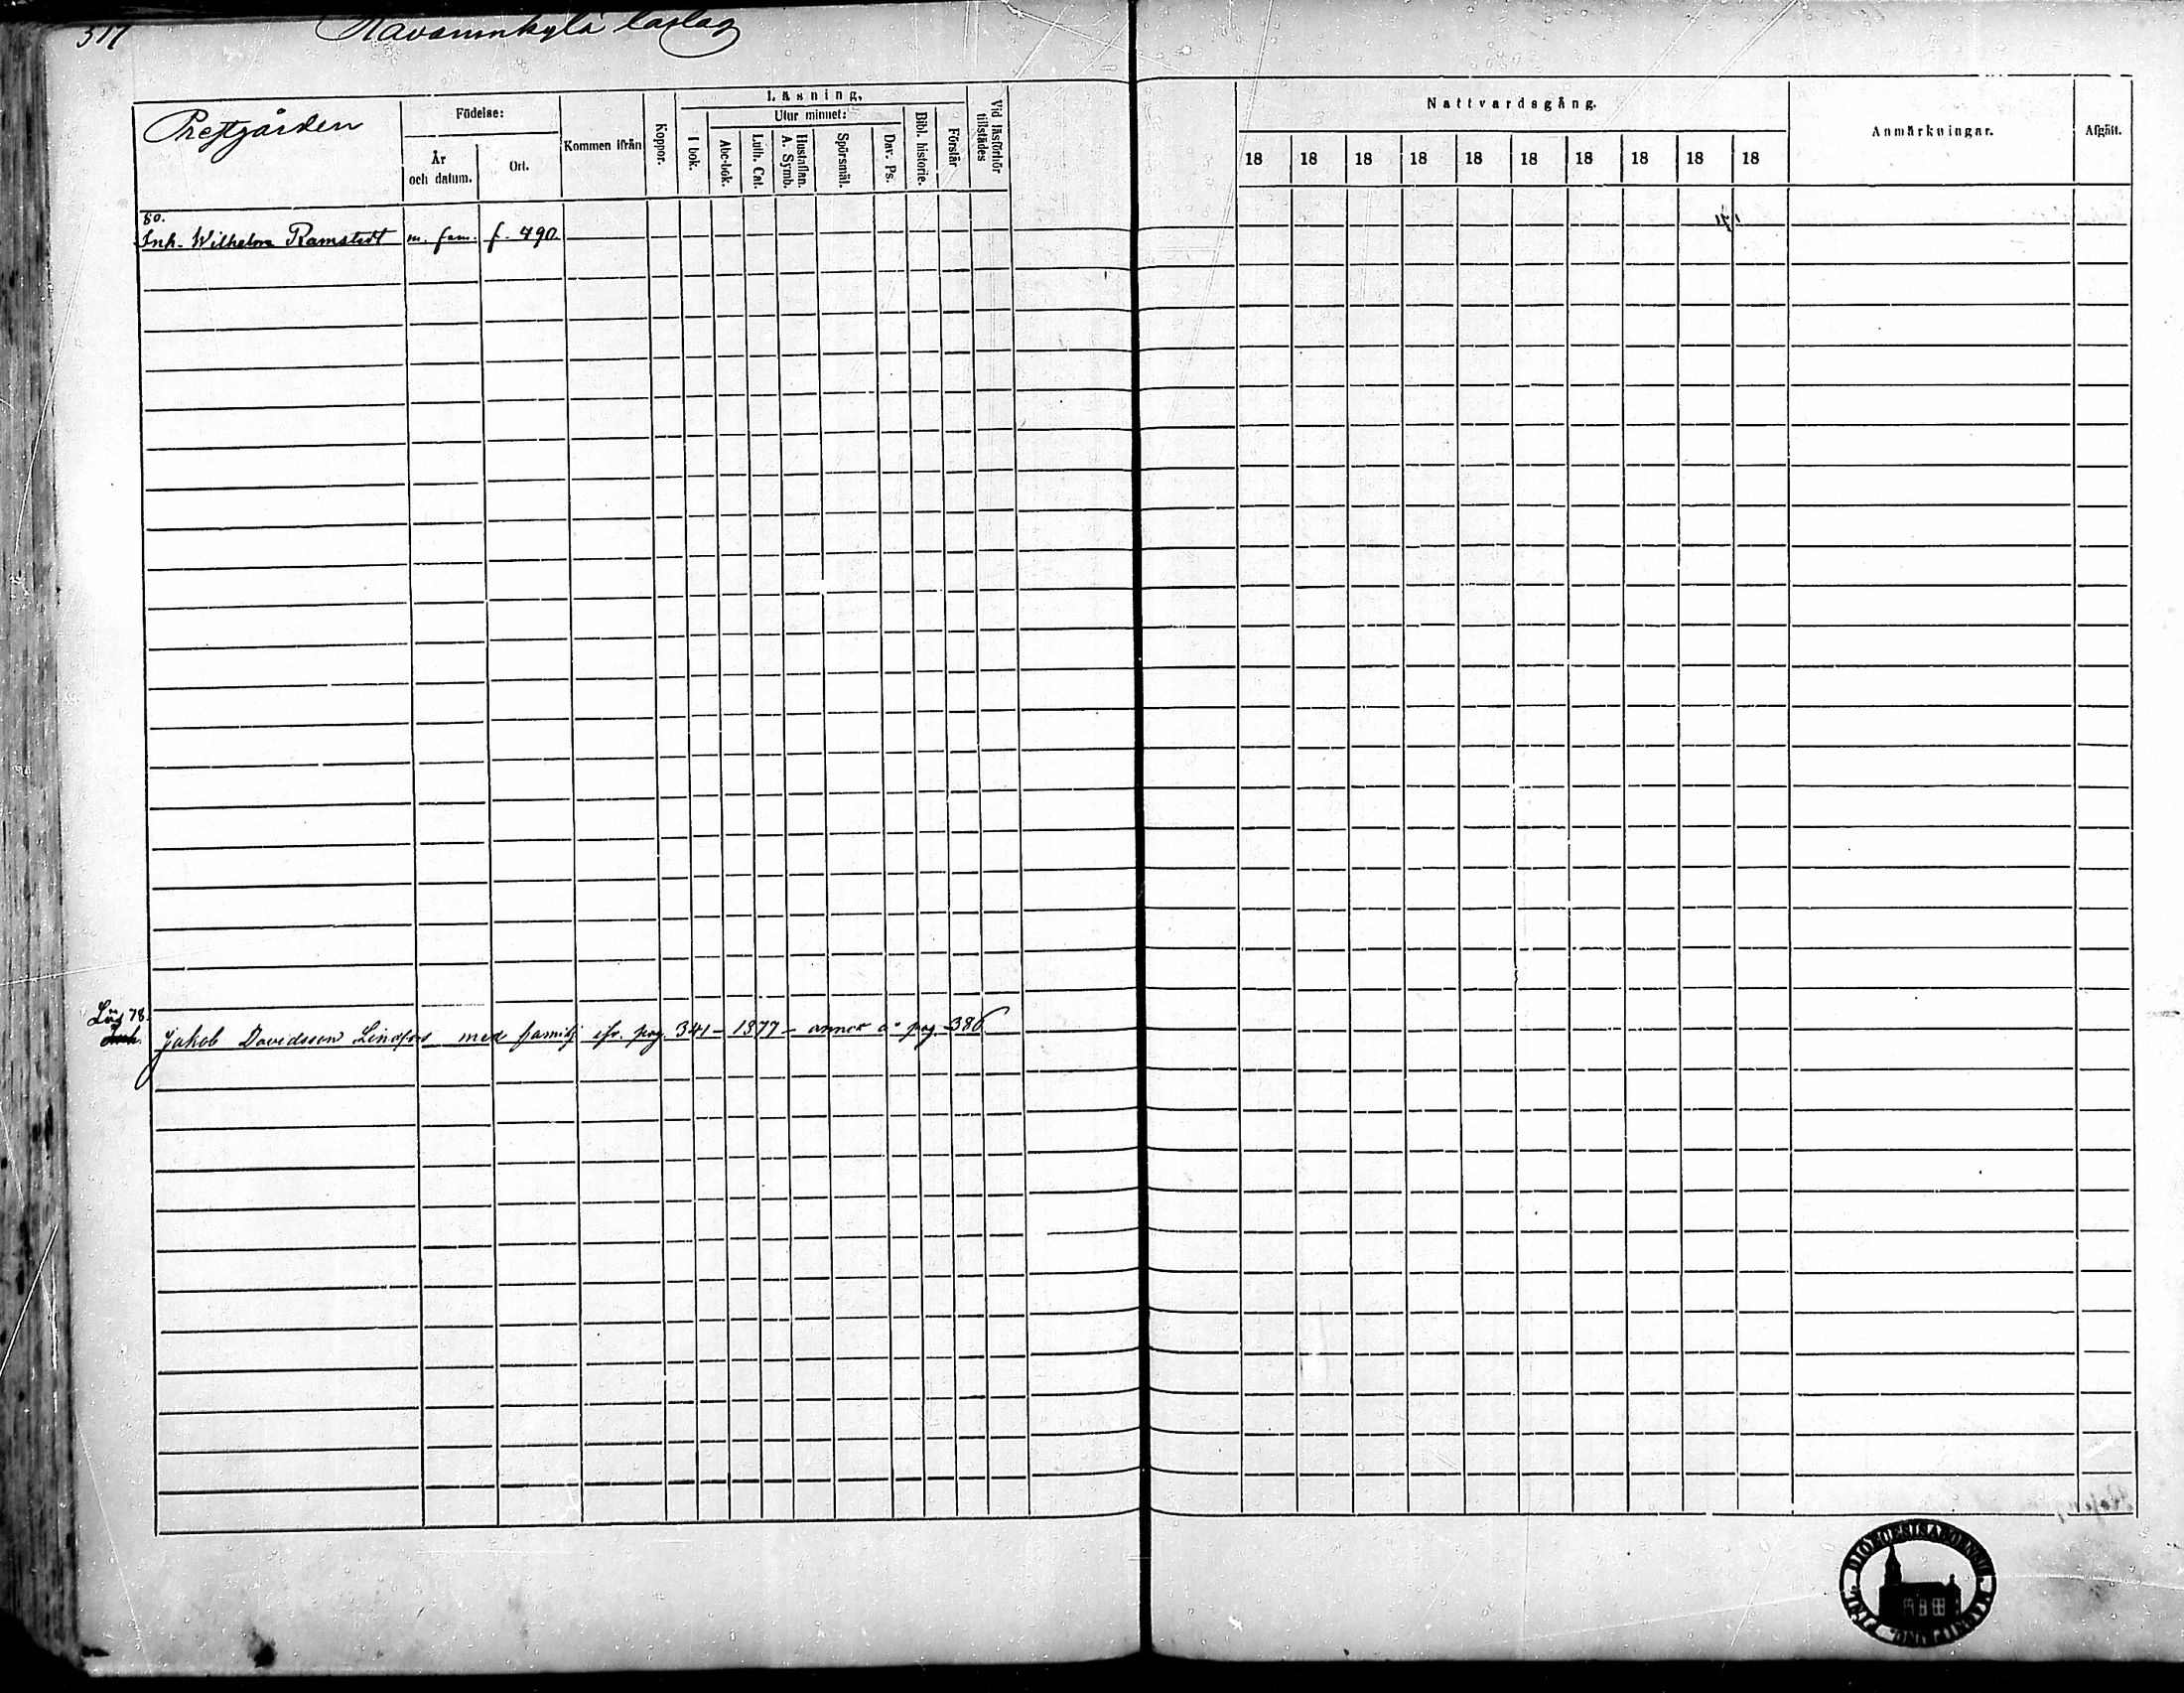 317
Kavaminkylä laslag
Prestgården
Födelse:
År och datum.
Ort.
Kommen ifrån
Koppor.
Läsning.
I bok.
Utur minnet:
Abc-bok.
Luth. Cat.
Hustaflan. A. Symb.
Spörsmål.
Dav. Ps.
Bibl. historie.
Förstår
Vid läsförhör tillstädes
Nattvardsgång.
18 18 18 18 18 18 18 18 18 18
Anmärkningar.
Afgått.
80.
Inh. Wilhelm Ramstedt m. fam. f. 490
Lös 78.
Inh. Jakob Davidsson Lindfors med familj ifr. pag. 341 - 1877 - annor å pag. 386